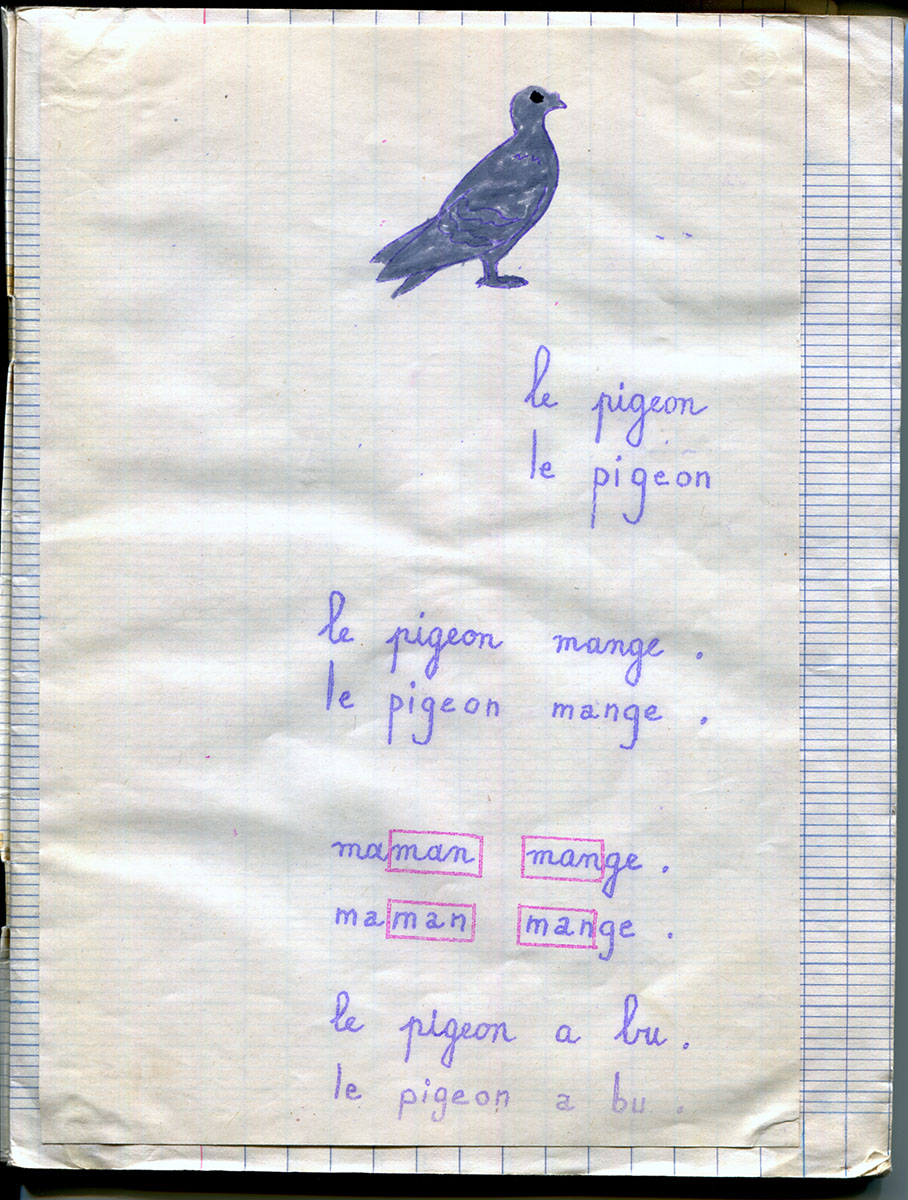 le pigeon
le pigeon
le pigeon mange .
le pigeon mange .
maman mange .
maman mange .
le pigeon a bu .
le pigeon a bu .